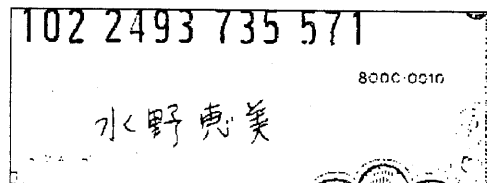 102 2493 735 571
8000-0010
水野恵美